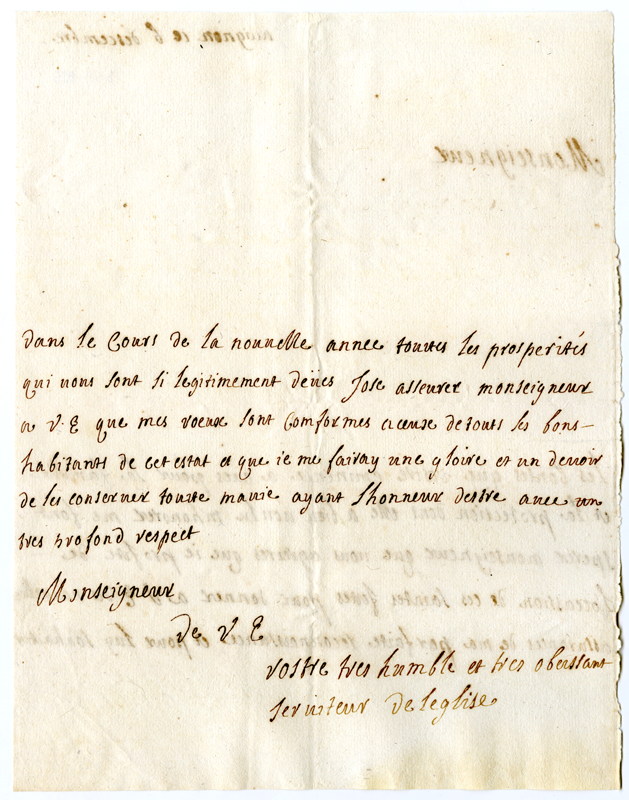 dans le Cours de la nouuelle annee toutes les prosperités
qui uous sont si legitimement deües Jose asseurer monseigneur
a V. E que mes voeux sont Comformes aceux detouts les bons-
habitants de cet estat et que ie me fairay une gloire et un deuoir
de les conseruer toutte mauie ayant lhonneur destre auec un
tres profond respect
Monseigneur
De V E
vostre tres humble et tres obeissant
seruiteur Deleglise